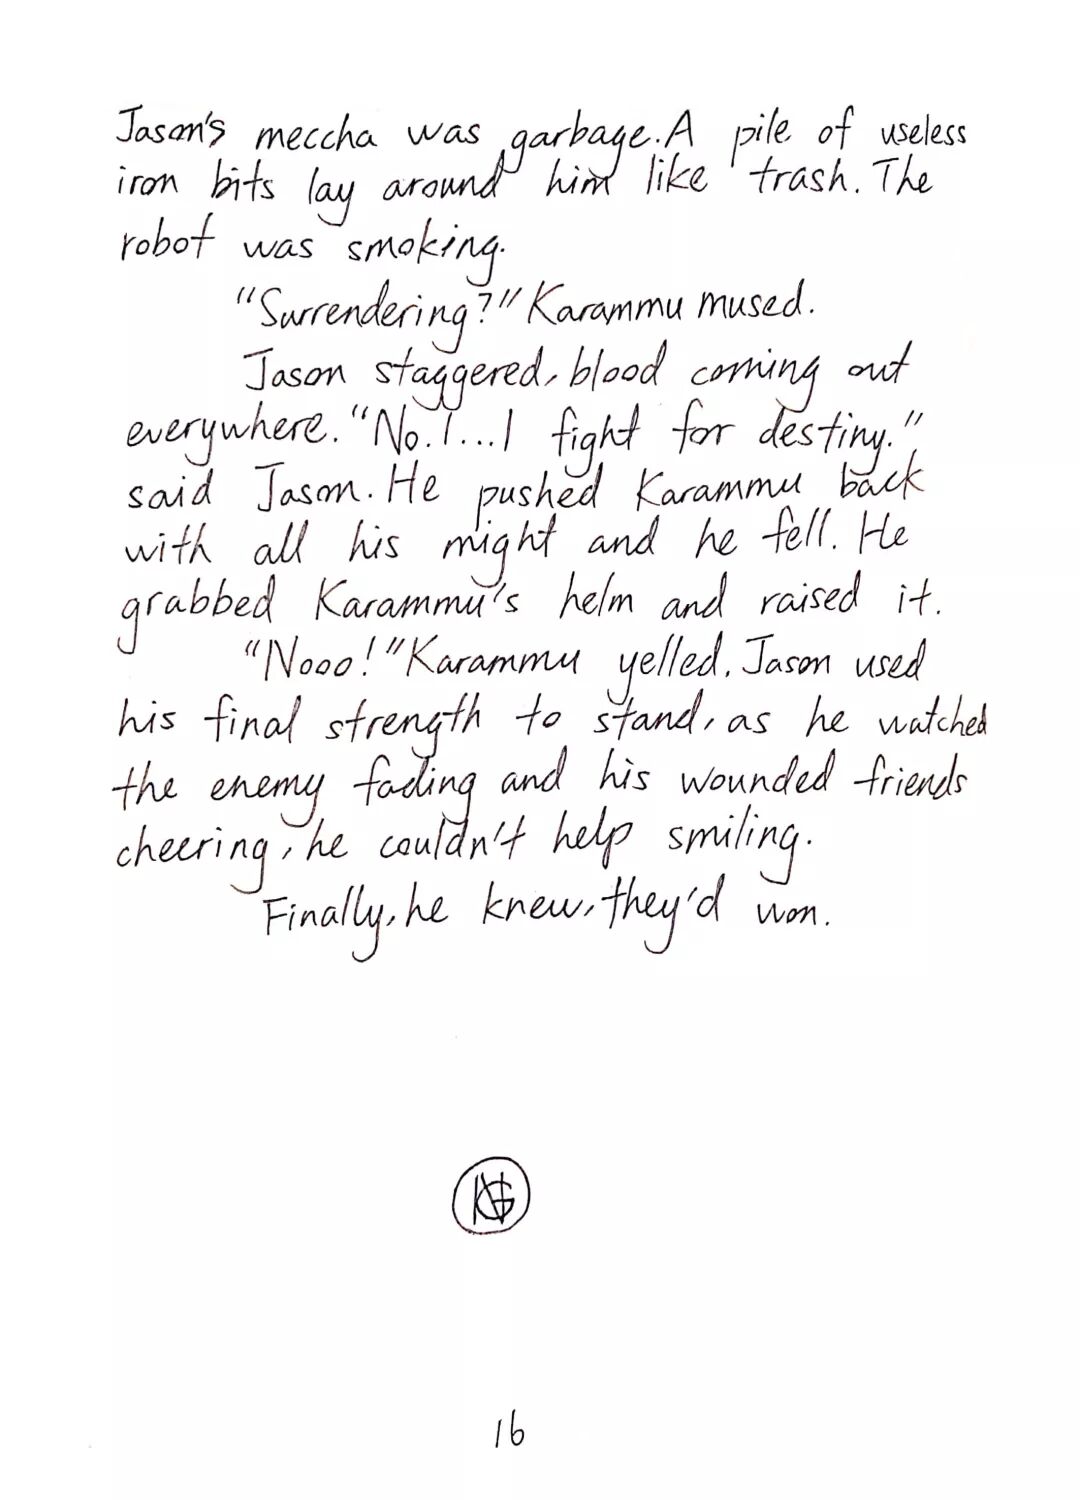 Jason's meccha was garbage. A pile of useless
iron bits lay around him like trash. The
robot was smoking.
"Surrendering?" Karammu mused.
Jason staggered, blood coming out
everywhere. "No. I...I fight for destiny."
said Jason. He pushed Karammu back
with all his might and he fell. He
grabbed Karammu's helm and raised it.
"Nooo!" Karammu yelled. Jason used
his final strength to stand, as he watched
the enemy fading and his wounded friends
cheering, he couldn't help smiling.
Finally, he knew, they'd won.
16